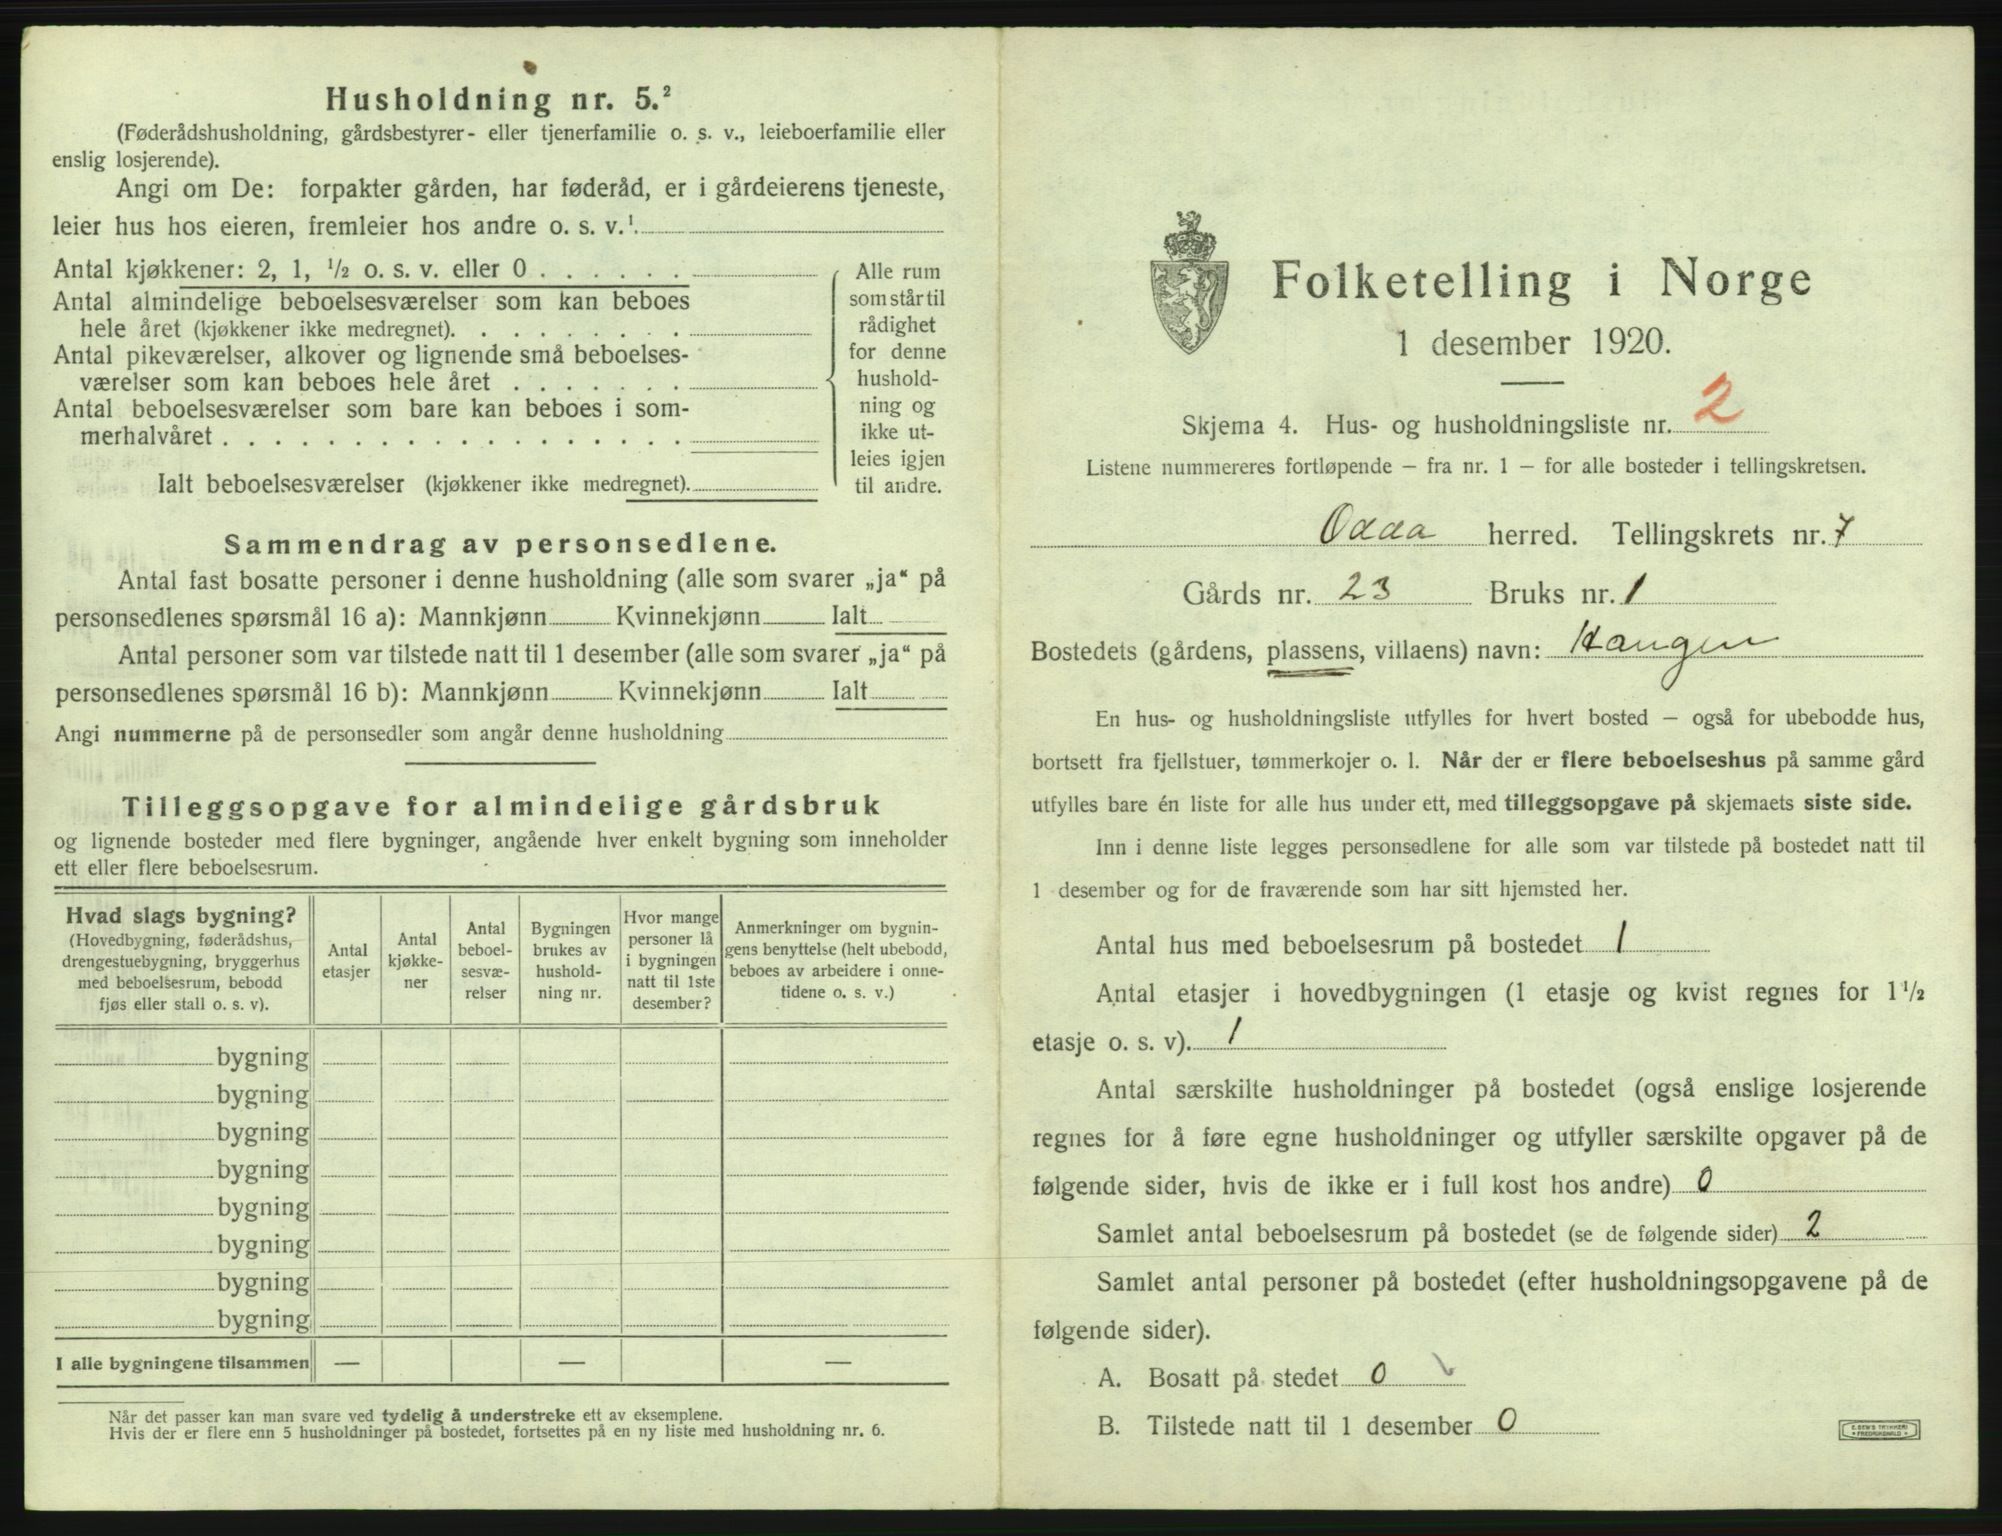 Husholdning nr. 5.²
(Føderådshusholdning, gårdsbestyrer- eller tjenerfamilie o. s. v., leieboerfamilie eller
enslig losjerende).
Angi om De: forpakter gården, har føderåd, er i gårdeierens tjeneste,
leier hus hos eieren, fremleier hos andre o. s. v.¹.
Antal kjøkkener: 2, 1, ½ o. s. v. eller 0 . . . . . .
Antal almindelige beboelsesværelser som kan beboes
hele året (kjøkkener ikke medregnet). . . . . . . . .
Antal pikeværelser, alkover og lignende små beboelses-
værelser som kan beboes hele året . . . . . . .
Antal beboelsesværelser som bare kan beboes i som-
merhalvåret . . . . . . . . . . . . . . . . . .
Ialt beboelsesværelser (kjøkkener ikke medregnet).
Alle rum
som står til
rådighet
for denne
hushold-
ning og
ikke ut-
leies igjen
til andre.
Sammendrag av personsedlene.
Antal fast bosatte personer i denne husholdning (alle som svarer „ja“ på
personsedlenes spørsmål 16 a): Mannkjønn Kvinnekjønn Ialt
Antal personer som var tilstede natt til 1 desember (alle som svarer „ja“ på
personsedlenes spørsmål 16 b): Mannkjønn Kvinnekjønn Ialt
Angi nummerne på de personsedler som angår denne husholdning
Tilleggsopgave for almindelige gårdsbruk
og lignende bosteder med flere bygninger, angående hver enkelt bygning som inneholder
ett eller flere beboelsesrum.
Hvad slags bygning?
(Hovedbygning, føderådshus,
drengestuebygning, bryggerhus
med beboelsesrum, bebodd
fjøs eller stall o. s. v).
Antal
etasjer
Antal
kjøkke-
ner
Antal
beboel-
sesvæ-
relser
Bygningen
brukes av
hushold-
ning nr.
Hvor mange
personer lå
i bygningen
natt til 1ste
desember?
Anmerkninger om bygnin-
gens benyttelse (helt ubebodd,
beboes av arbeidere i onne-
tidene o. s. v.)
bygning
bygning
bygning
bygning
bygning
bygning
bygning
bygning
I alle bygningene tilsammen — — —
Når det passer kan man svare ved tydelig å understreke ett av eksemplene.
Hvis der er flere enn 5 husholdninger på bostedet, fortsettes på en ny liste med husholdning nr. 6.
Folketelling i Norge
1 desember 1920.
Skjema 4. Hus- og husholdningsliste nr. 2
Listene nummereres fortløpende – fra nr. 1 – for alle bosteder i tellingskretsen.
Odda herred. Tellingskrets nr. 7
Gårds nr. 23 Bruks nr. 1
Bostedets (gårdens, plassens, villaens) navn: Haugen
En hus- og husholdningsliste utfylles for hvert bosted – også for ubebodde hus,
bortsett fra fjellstuer, tømmerkojer o. l. Når der er flere beboelseshus på samme gård
utfylles bare én liste for alle hus under ett, med tilleggsopgave på skjemaets siste side.
Inn i denne liste legges personsedlene for alle som var tilstede på bostedet natt til
1 desember og for de fraværende som har sitt hjemsted her.
Antal hus med beboelsesrum på bostedet 1
Antal etasjer i hovedbygningen (1 etasje og kvist regnes for 1½
etasje o. s. v). 1
Antal særskilte husholdninger på bostedet (også enslige losjerende
regnes for å føre egne husholdninger og utfyller særskilte opgaver på de
følgende sider, hvis de ikke er i full kost hos andre) 0
Samlet antal beboelsesrum på bostedet (se de følgende sider) 2
Samlet antal personer på bostedet (efter husholdningsopgavene på de
følgende sider).
A. Bosatt på stedet 0
B. Tilstede natt til 1 desember 0